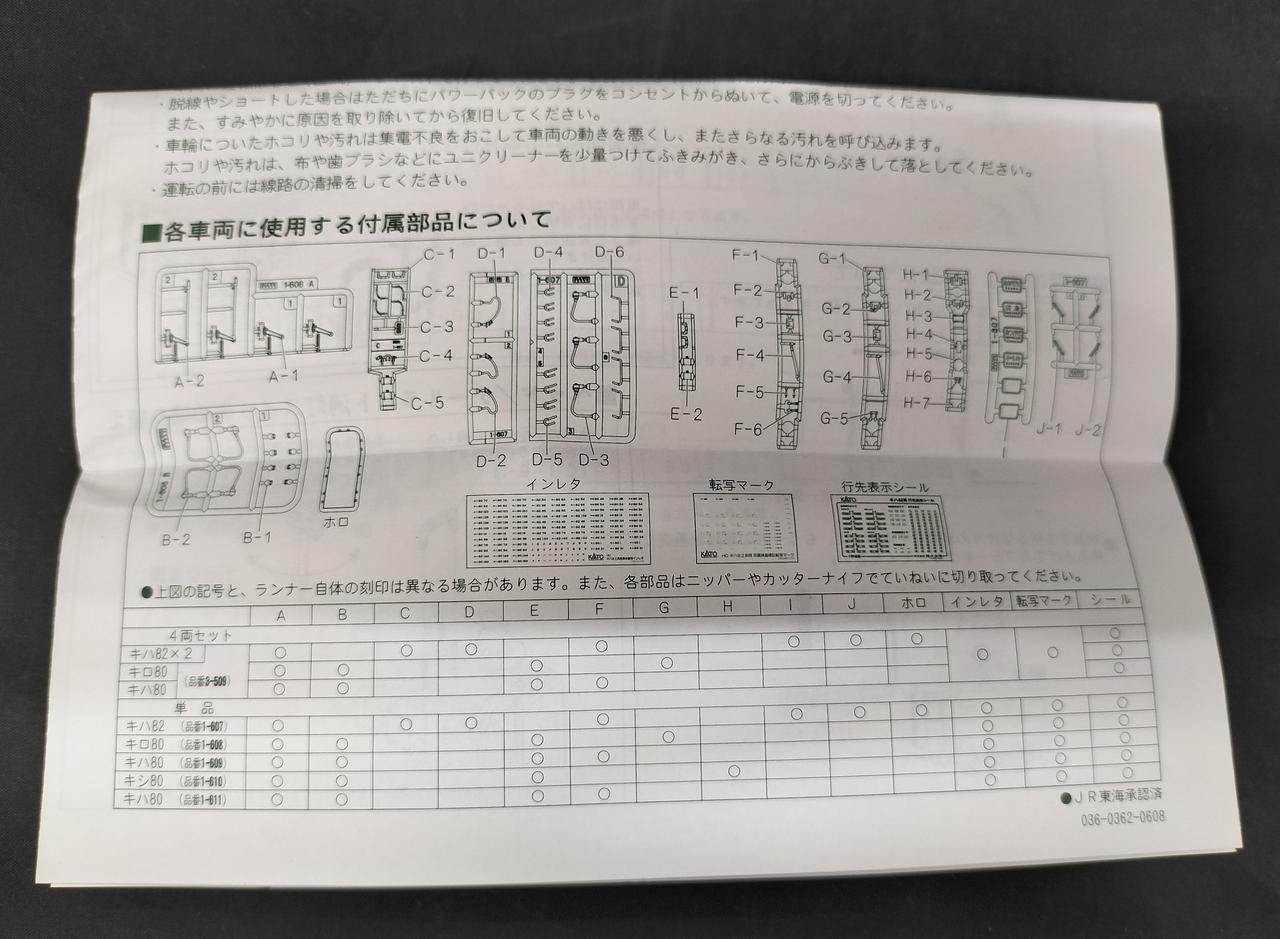 ・脱線やショートした場合はただちにパワーパックのプラグをコンセントからぬいて、電源を切ってください。
また、すみやかに原因を取り除いてから復旧してください。
・車輪についたホコリや汚れは集電不良をおこして車両の動きを悪くし、またさらなる汚れを呼び込みます。
ホコリや汚れは、布や歯ブラシなどにユニクリーナーを少量つけてふきみがき、さらにからぶきして落としてください。
・運転の前には線路の清掃をしてください。
■各車両に使用する付属部品について
C-1 D-1 D-4 D-6 F-1 G-1 H-1
2 2 1-606 A 1 1
C-2 1-607 D E-1 F-2 G-2 H-2
C-3 F-3 G-3 H-3
H-4
C C-4 F-4 G-4 H-5
A-2 A-1 C-5 E-2 F-5 G-5 H-6
H-7
F-6 J-1 J-2
1-607
1-607
1-607
D-2 D-5 D-3
2 1
1-606 B
B-2 B-1 ホロ
インレタ 転写マーク 行先表示シール
KATO KATO KATO
●上図の記号と、ランナー自体の刻印は異なる場合があります。また、各部品はニッパーやカッターナイフでていねいに切り取ってください。
A B C D E F G H I J ホロ インレタ 転写マーク シール
4両セット ○
キハ82×2 ○ ○ ○ ○ ○ ○ ○ ○ ○ ○
キロ80 (品番3-509) ○ ○ ○ ○ ○
キハ80 ○ ○ ○ ○
単 品
キハ82 (品番1-607) ○ ○ ○ ○ ○ ○ ○ ○ ○ ○
キロ80 (品番1-608) ○ ○ ○ ○ ○ ○ ○
キハ80 (品番1-609) ○ ○ ○ ○ ○ ○ ○
キシ80 (品番1-610) ○ ○ ○ ○ ○ ○ ○
キハ80 (品番1-611) ○ ○ ○ ○ ○ ○ ○
●JR東海承認済
036-0362-0608